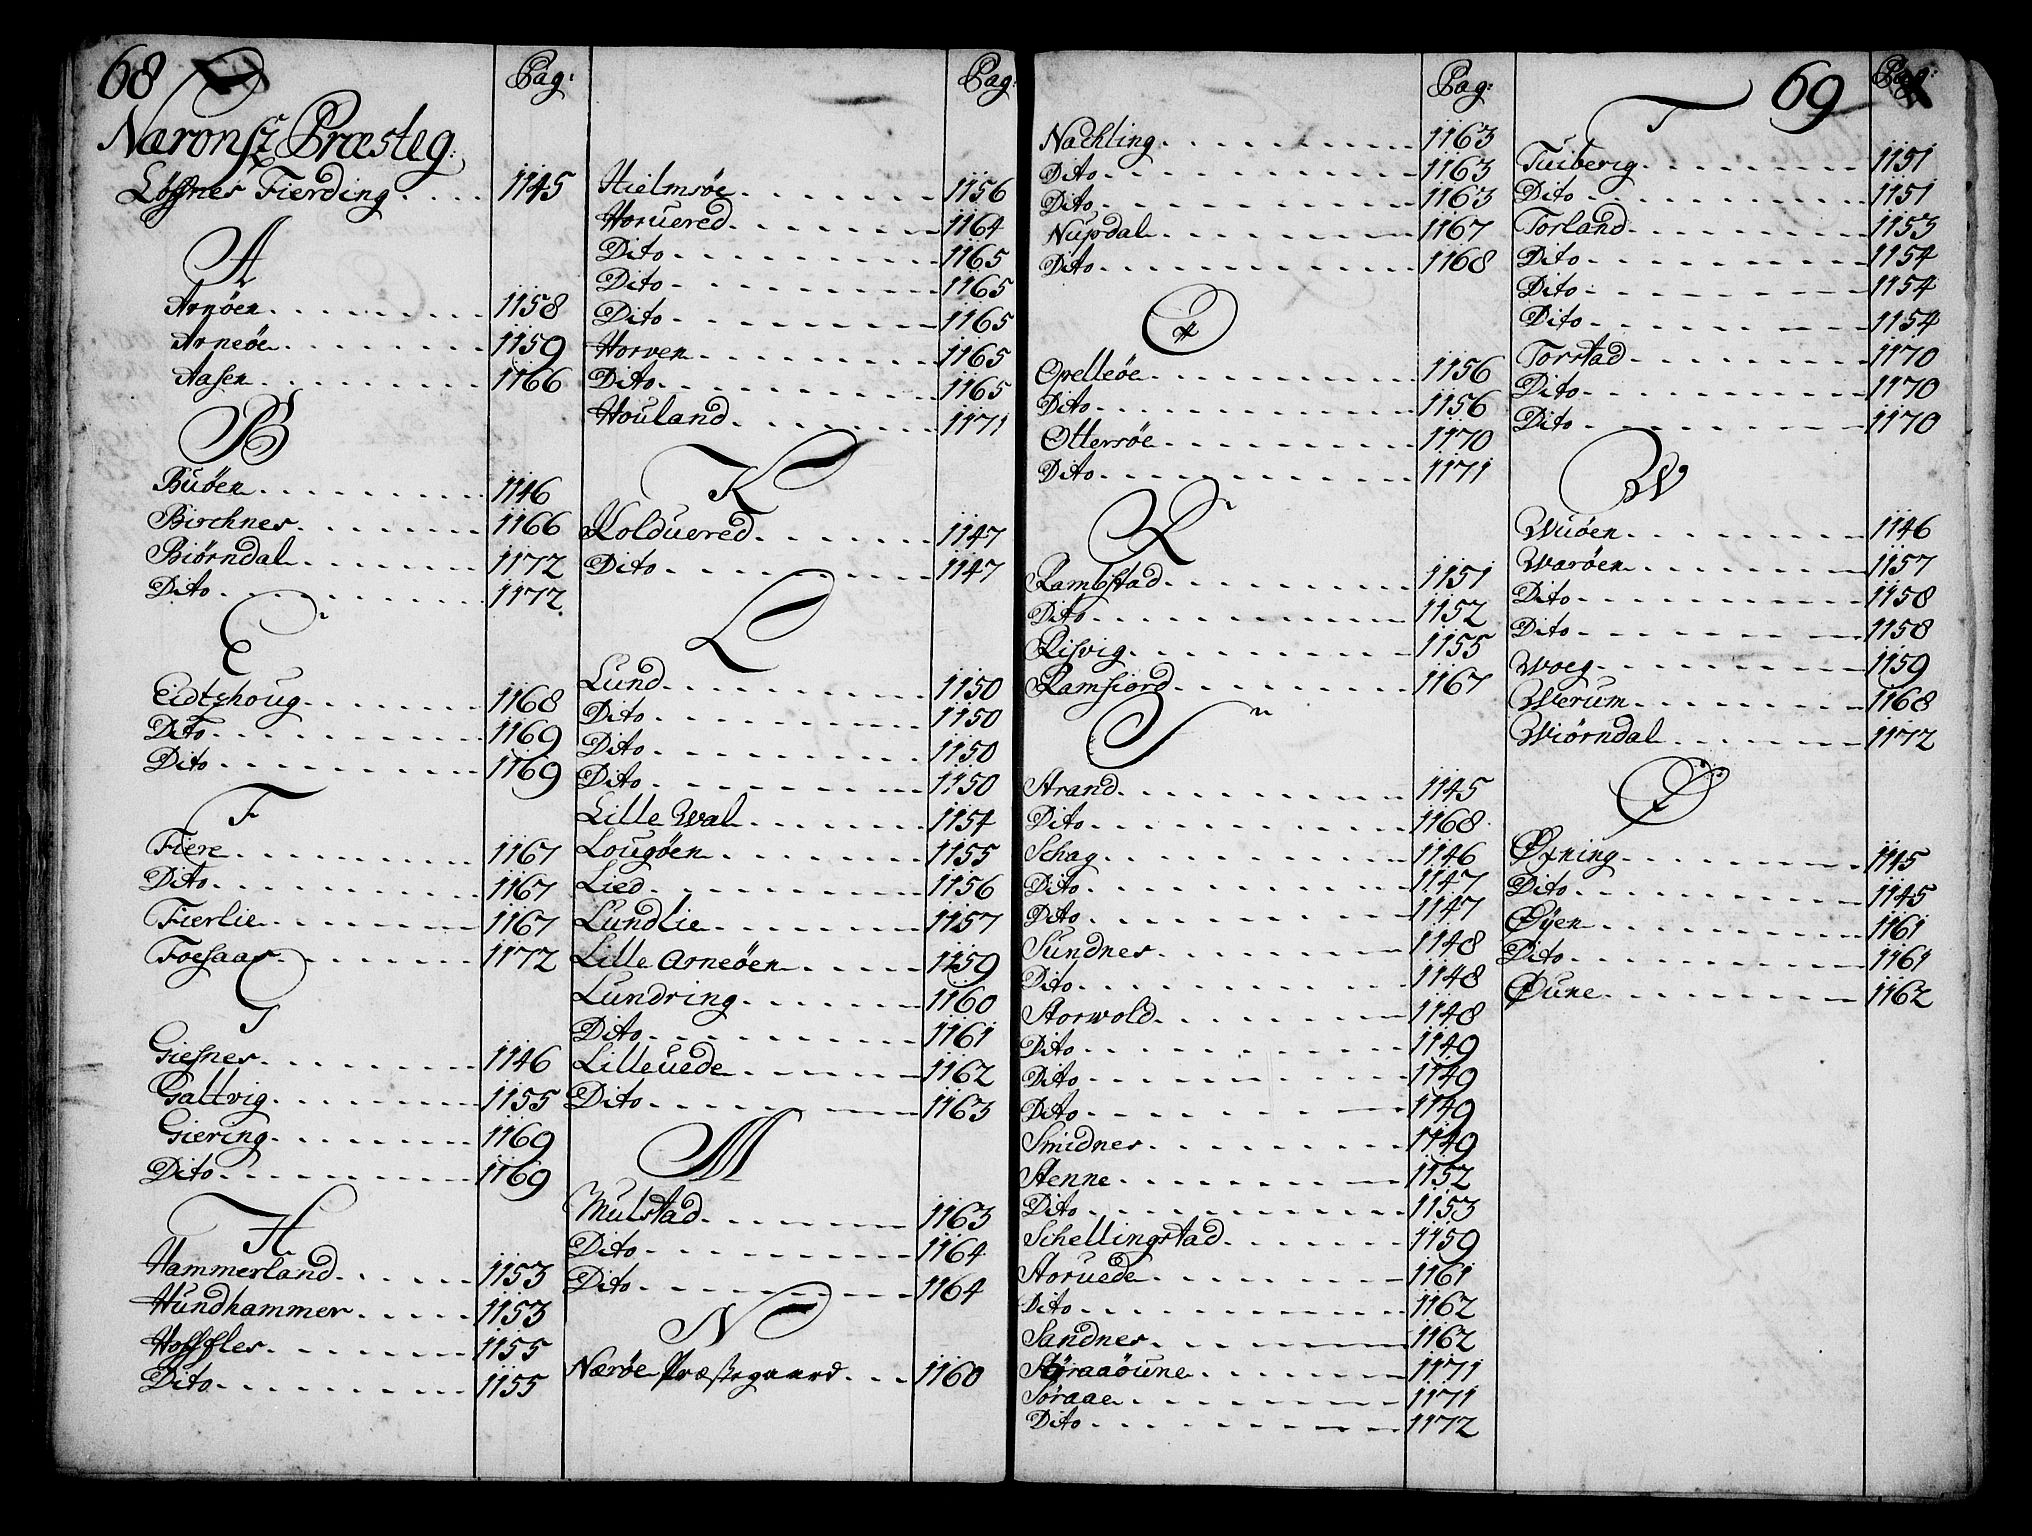 68
Pag:
Næronsz Præsteg:
Løssnes Fierding 1145
A
Arnøen 1158
Arneøe 1159
Aasen 1166
B
Buøen 1146
Birchnes 1166
Biørndal 1172
Dito 1172
E
Eidtzhoug 1168
Dito 1169
Dito 1169
F
Fiere 1167
Dito 1167
Fierlie 1167
Foesaas 1172
G
Giesnes 1146
Galtvig 1155
Giering 1169
Dito 1169
H
Hammerland 1153
Hundhammer 1153
Hoffles 1155
Dito 1155
Pag:
Hielmsøe 1156
Horuered 1164
Dito 1165
Dito 1165
Dito 1165
Horven 1165
Dito 1165
Houland 1171
K
Kolduered 1147
Dito 1147
L
Lund 1150
Dito 1150
Dito 1150
Dito 1150
Lille Wal 1154
Lougøen 1155
Lied 1156
Lundlie 1157
Lille Arneøen 1159
Lundring 1160
Dito 1161
Lilleuede 1162
Dito 1163
M
Mulstad 1163
Dito 1164
Dito 1164
N
Nærøe Præstegaard 1160
Pag:
Nachling 1163
Dito 1163
Dito 1163
Nupdal 1167
Dito 1168
O
Opelløe 1156
Dito 1156
Ottersøe 1170
Dito 1171
R
Rambstad 1151
Dito 1152
Risvig 1155
Ramfiord 1167
S
Strand 1145
Dito 1168
Schag 1146
Dito 1147
Dito 1147
Sundnes 1148
Dito 1148
Storwold 1148
Dito 1149
Dito 1149
Dito 1149
Smidnes 1149
Stenne 1152
Dito 1153
Schellingstad 1159
Storuede 1161
Dito 1162
Sandnes 1162
Støraaøune 1171
Søraae 1171
Dito 1172
69
Pag:
T
Tuiberig 1151
Dito 1151
Torland 1153
Dito 1154
Dito 1154
Dito 1154
Torstad 1170
Dito 1170
Dito 1170
W
Wuøen 1146
Warøen 1157
Dito 1158
Dito 1158
Woeg 1159
Werum 1168
Wiørndal 1172
Ø
Øxning 1145
Dito 1145
Øyen 1161
Dito 1161
Øune 1162